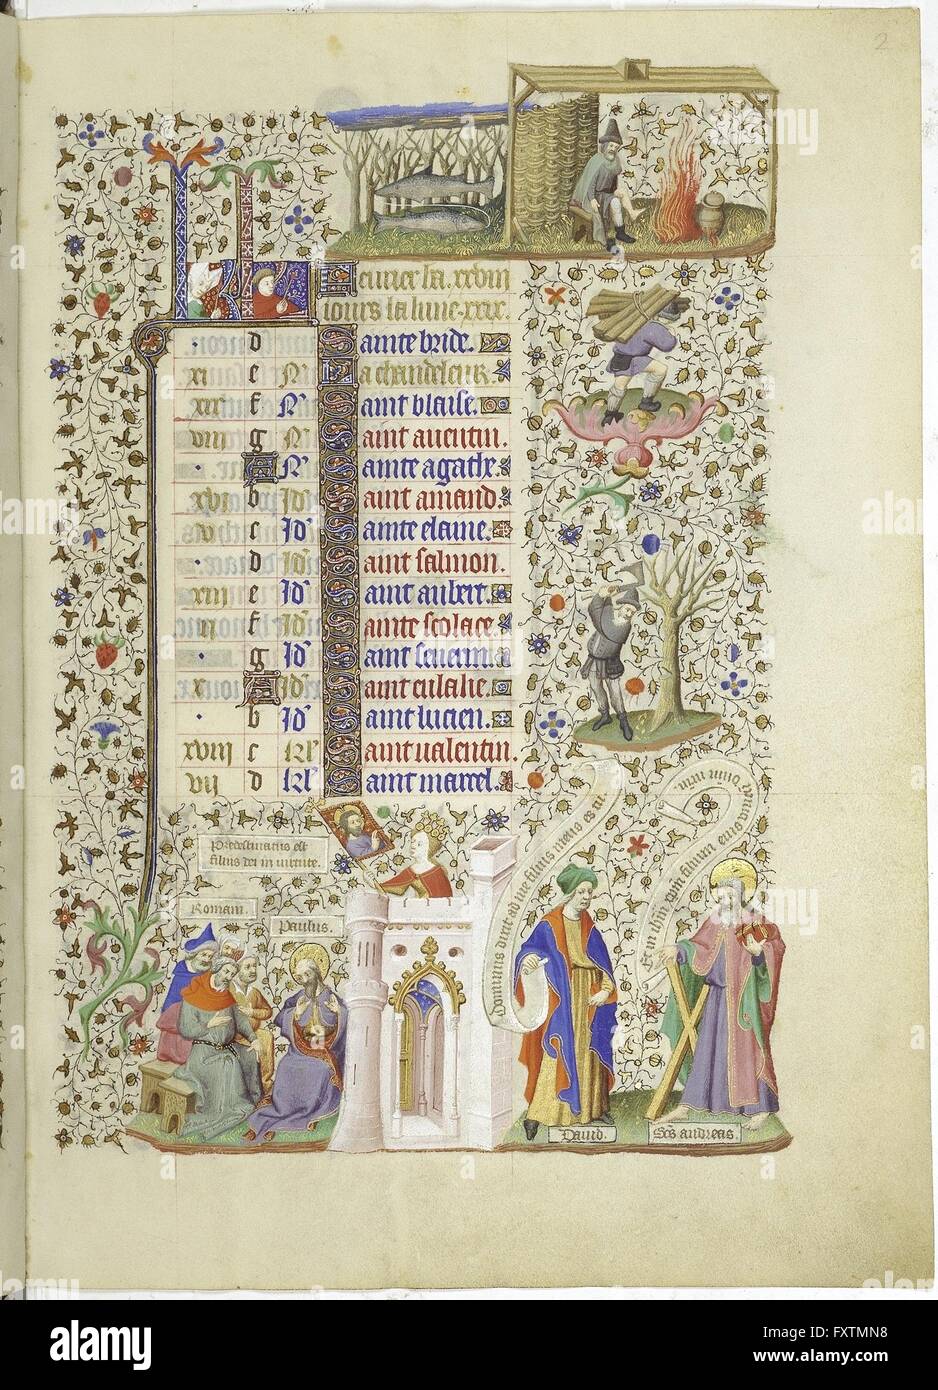 2
Feurier la .xxviii
iours la lune .xxix.
d Sainte bride.
xi e N La chandeleur.
xix f N Saint blaise.
viii g N Saint auentin.
A N Sainte agathe.
xvi b Id Saint amand.
v c Id Sainte elaine.
d Id Saint salmon.
xiii e Id Saint aubert.
ii f Id Sainte scolace.
g Id Saint seuerin.
x A Id Sainte eulalie.
b Id Saint lucien.
xviii c kl Saint valentin.
vii d kl Saint marcel.
Predestinatus est
filius dei in virtute.
Romani.
Paulus.
Dominus dixit ad me filius meus es tu.
Et in ihesum xpm filium eius unicum dominum nostrum.
Dauid.
Scs andreas.
alamy
Image ID: FXTMN8
www.alamy.com